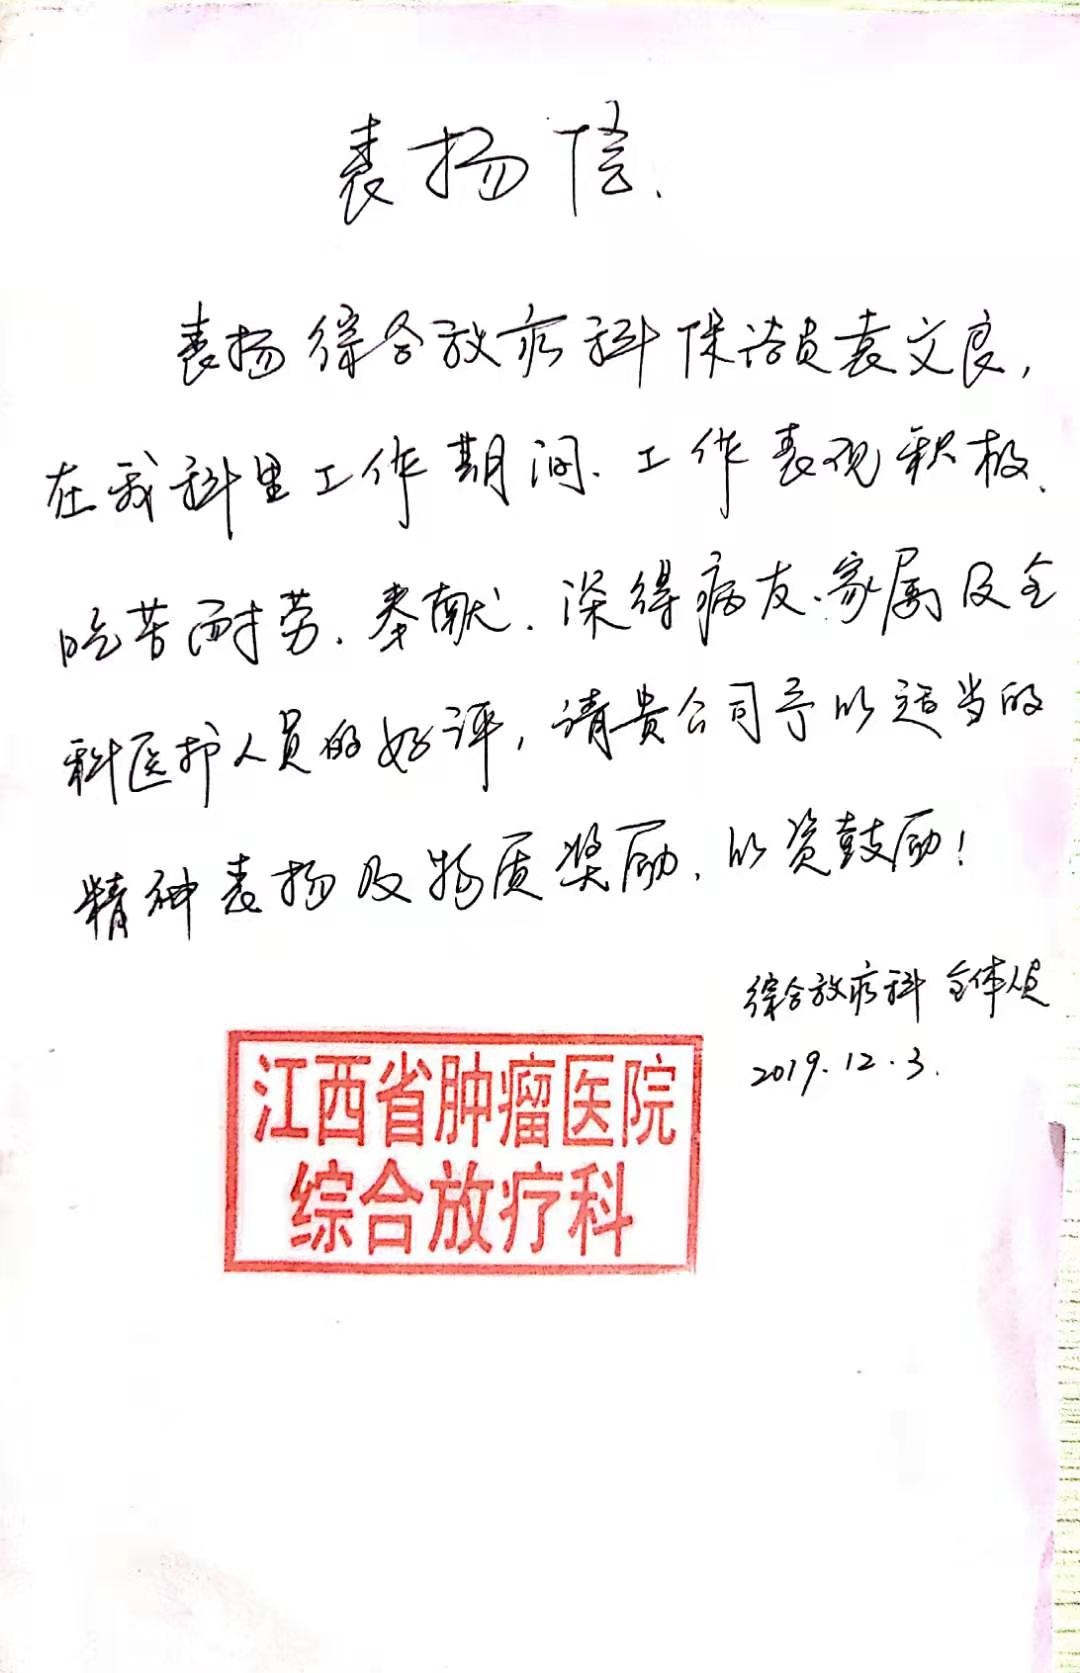 表扬信.
表扬综合放疗科保洁员袁文良,
在我科里工作期间、工作表现积极、
吃苦耐劳、奉献、深得病友、家属及全
科医护人员的好评,请贵公司予以适当的
精神表扬及物质奖励、以资鼓励!
综合放疗科 全体人员
2019.12.3.
江西省肿瘤医院
综合放疗科